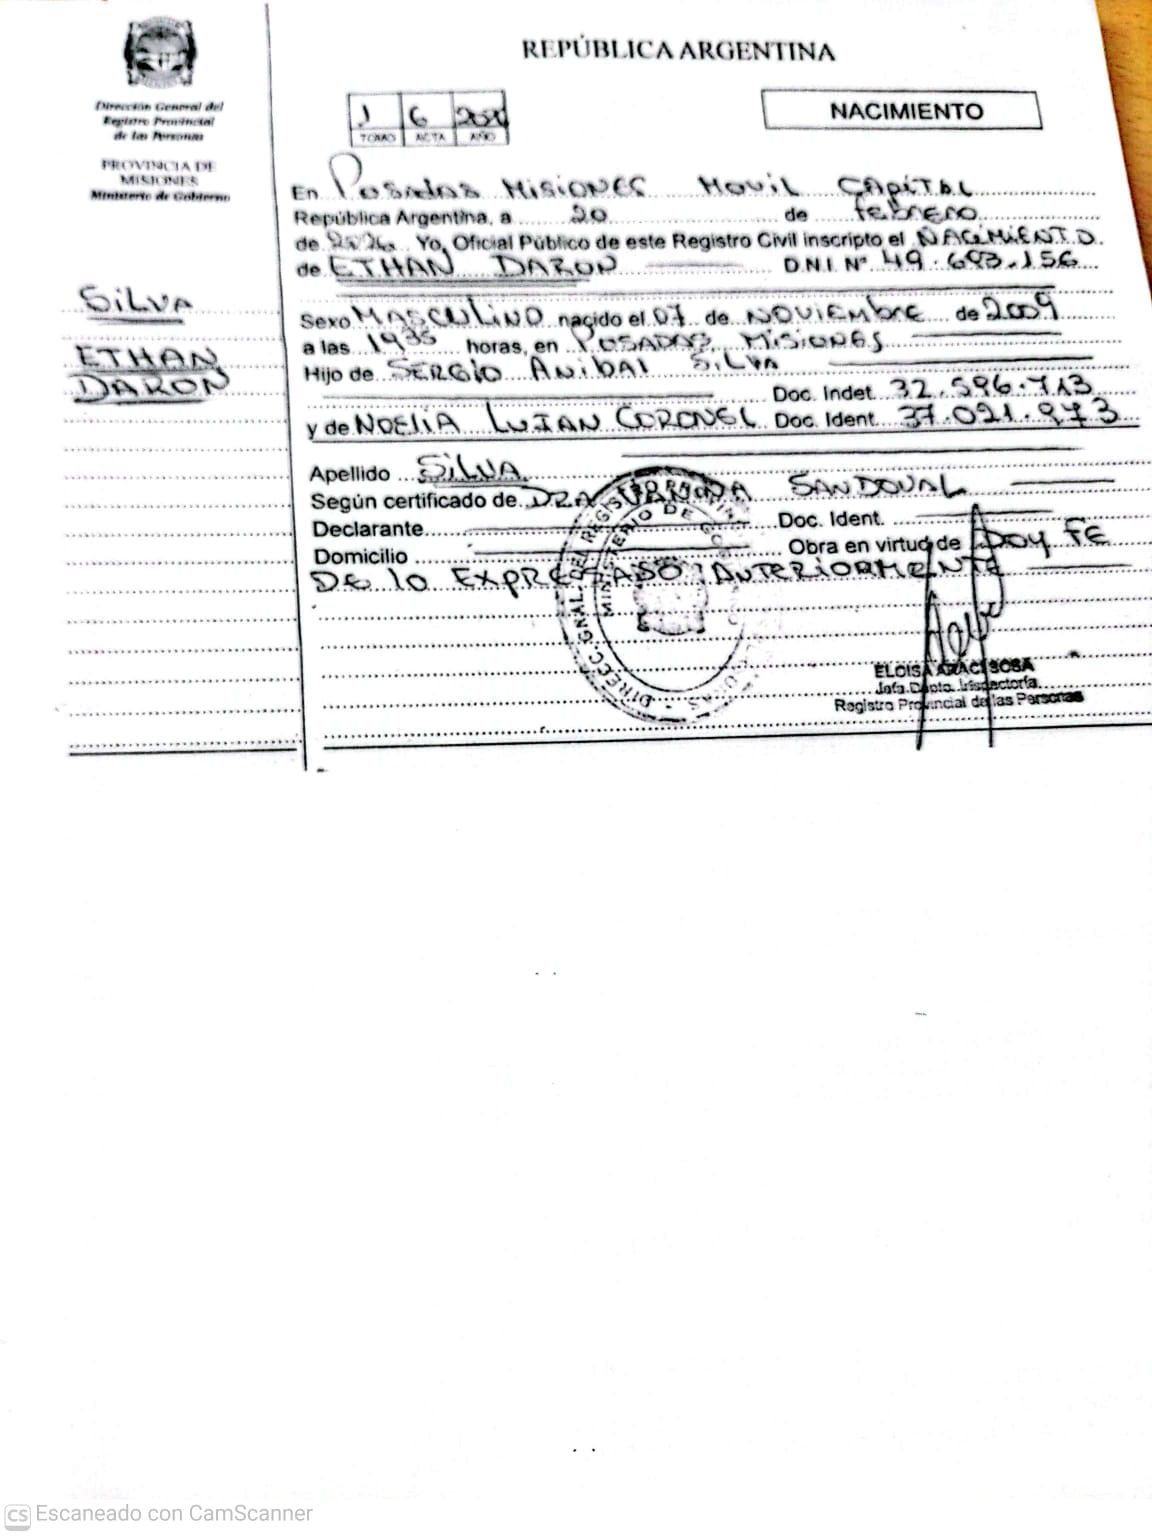 Dirección General del
Registro Provincial
de las Personas
PROVINCIA DE
MISIONES
Ministerio de Gobierno
SILVA
ETHAN
DARON
REPÚBLICA ARGENTINA
NACIMIENTO
1 6
TOMO ACTA AÑO
En Posadas Misiones Movil Capital
República Argentina, a 20 de febrero
de 2026 Yo, Oficial Público de este Registro Civil inscripto el NACIMIENTO
de ETHAN DARON D.N.I. Nº 49.693.156
Sexo MASCULINO nacido el 07 de NOVIEMBRE de 2009
a las 1935 horas, en POSADAS MISIONES
Hijo de SERGIO ANIBAL SILVA
Doc. Indet. 32.596.713
y de NOELIA LUJAN CORONEL Doc. Ident. 37.021.973
Apellido SILVA
Según certificado de DRA SANDOVAL
Declarante Doc. Ident.
Domicilio Obra en virtud de Doy FE
DE lo EXPRESADO ANTERIORMENTE
DIRECC. GRAL. DEL REGISTRO
MINISTERIO DE
ELOISA ARACI SOSA
Jefa Dpto. Inspectoría
Registro Provincial de las Personas
CS Escaneado con CamScanner